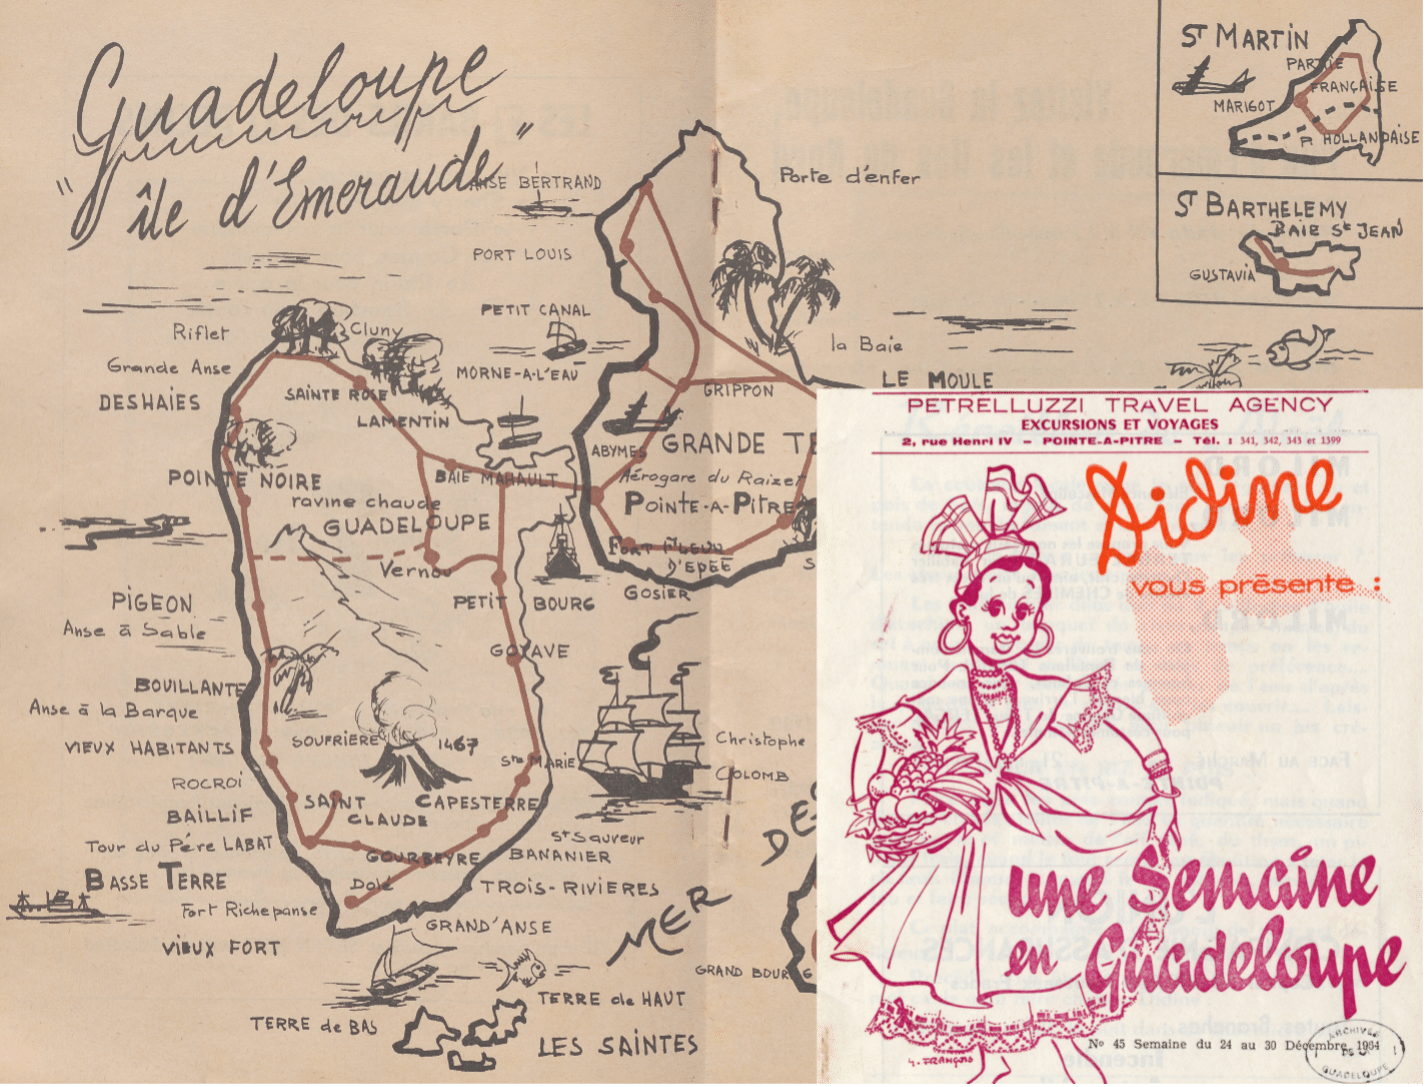 Guadeloupe
"île d'Emeraude"
ST MARTIN
PARTIE
FRANÇAISE
MARIGOT
P. HOLLANDAISE
ST BARTHELEMY
BAIE St JEAN
GUSTAVIA
ANSE BERTRAND
Porte d'enfer
PORT LOUIS
PETIT CANAL
Riflet
Cluny
la Baie
Grande Anse
MORNE-A-L'EAU
LE MOULE
DESHAIES
SAINTE ROSE
GRIPPON
LAMENTIN
ABYMES
GRANDE TE
POINTE NOIRE
BAIE MAHAULT
Aérogare du Raizet
ravine chaude
POINTE-A-PITRE
GUADELOUPE
FORT FLEUR
D'EPEE
Vernou
S
GOSIER
PIGEON
PETIT BOURG
Anse à Sable
GOYAVE
BOUILLANTE
Anse à la Barque
VIEUX HABITANTS
SOUFRIERE
1467
Christophe
COLOMB
Ste MARIE
ROCROI
SAINT
CLAUDE
CAPESTERRE
BAILLIF
DE
Tour du Pére LABAT
St Sauveur
GOURBEYRE
BANANIER
BASSE TERRE
Dolé
TROIS-RIVIERES
Fort Richepanse
GRAND'ANSE
MER
VIEUX FORT
GRAND BOURG
TERRE de HAUT
TERRE de BAS
LES SAINTES
PETRELLUZZI TRAVEL AGENCY
EXCURSIONS ET VOYAGES
2, rue Henri IV – POINTE-A-PITRE – Tél. : 341, 342, 343 et 1399
Didine
vous présente :
une Semaine
en Guadeloupe
G. FRANÇOIS
No 45 Semaine du 24 au 30 Décembre 1964
ARCHIVES
DE LA
GUADELOUPE